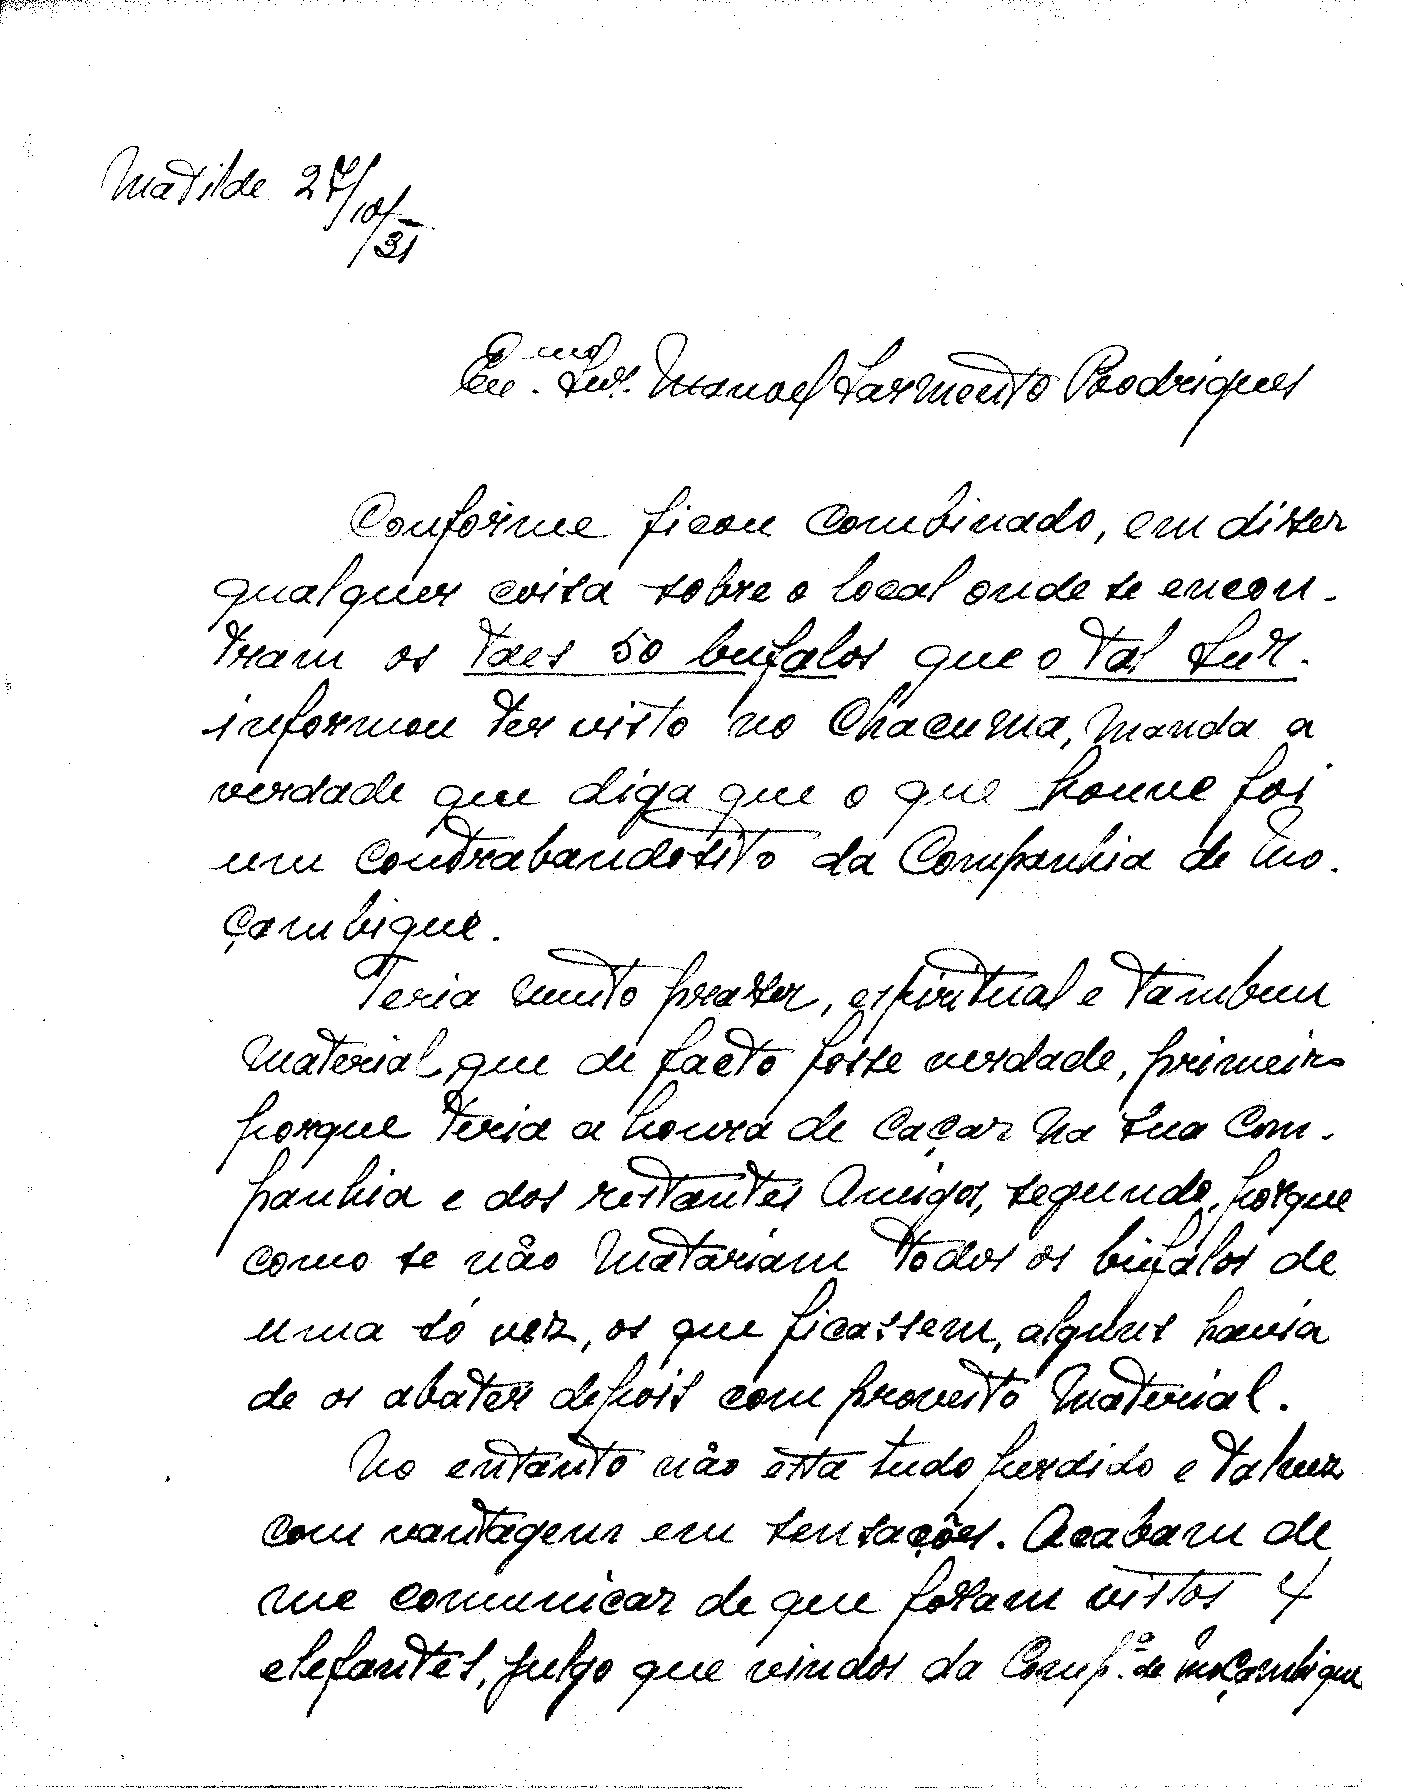 Matilde 27/10/31
Exc.mo Snr. Manoel Sarmento Rodrigues
Conforme ficou combinado, em diser
qualquer coisa sobre o local onde se encon-
tram os taes 50 bufalos que o tal Snr.
informou ter visto no Chacuma, manda a
verdade que diga que o que houve foi
um contrabandosito da Companhia de Mo-
çambique.
Teria muito praser, espiritual e tambem
material, que de facto fosse verdade, primeiro
porque teria a honra de caçar na sua Com-
panhia e dos restantes Amigos, segundo, porque
como se não matariam todos os bufalos de
uma só vez, os que ficassem, alguns havia
de os abater depois com proveito material.
No entanto não está tudo perdido e talvez
com vantagem em sensações. Acabam de
me comunicar de que foram vistos 4
elefantes, julgo que vindos da Comp.ª de Moçambique